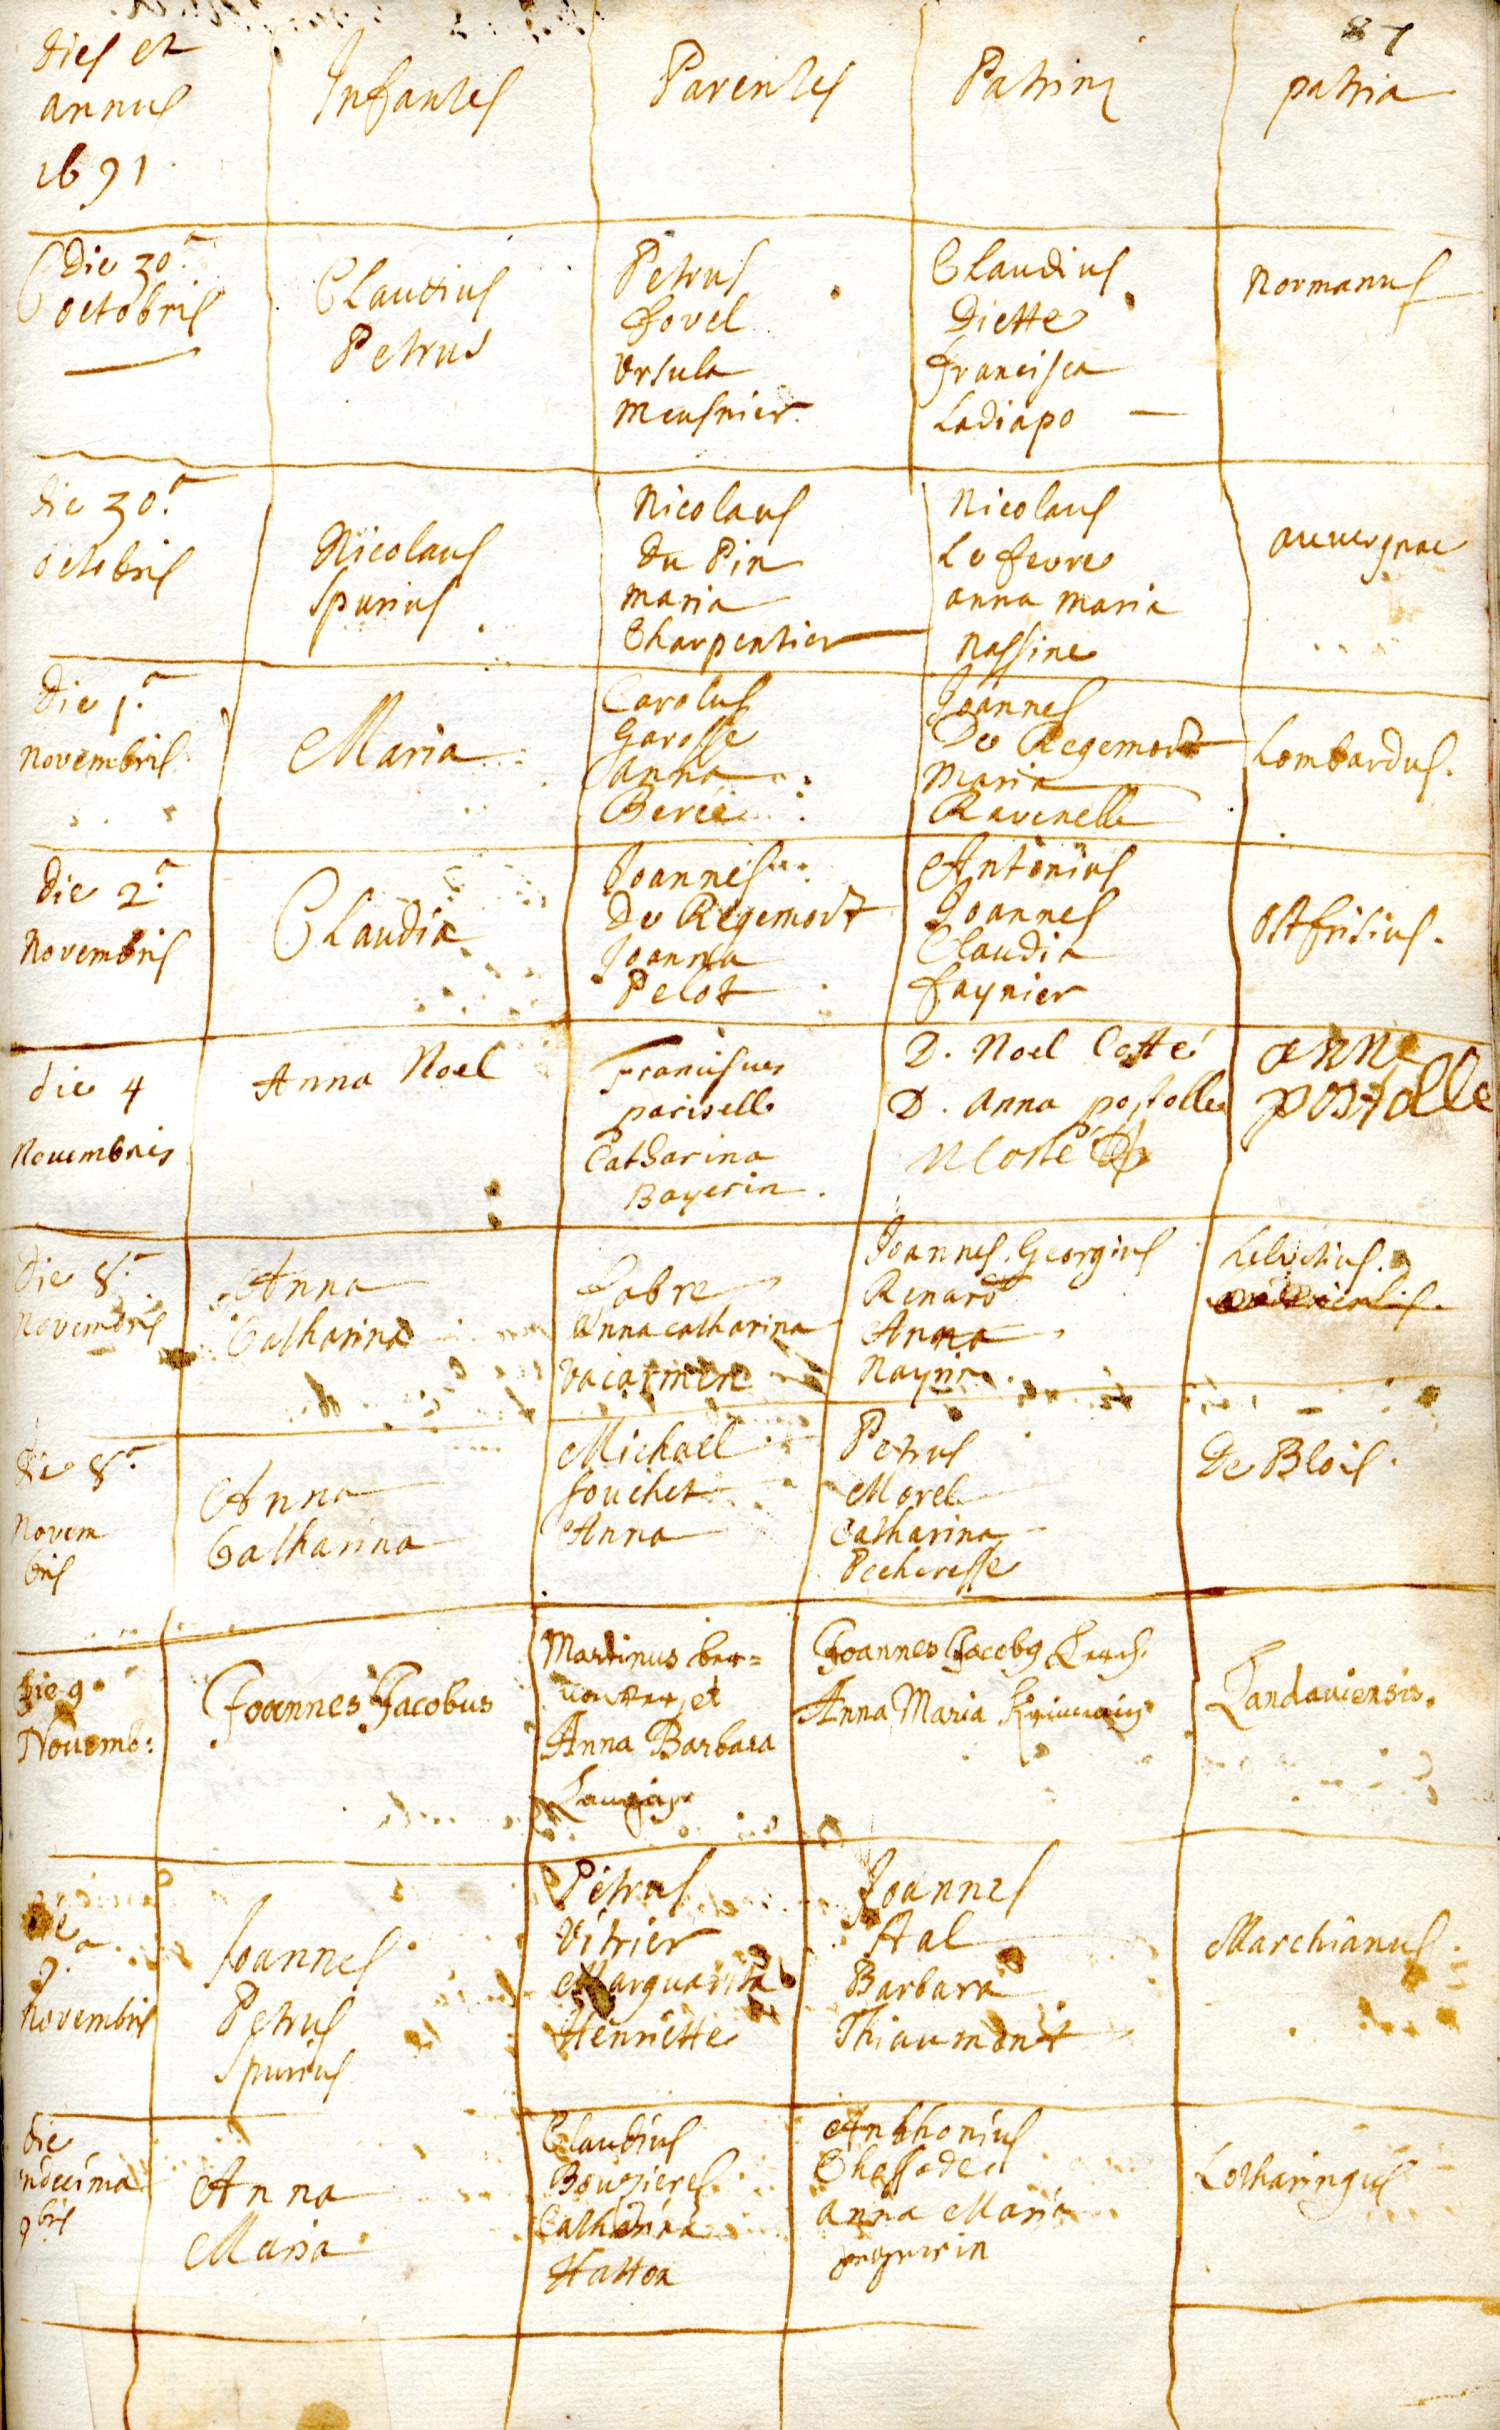 87
dies et
annus
1691
Infantes
Parentes
Patrini
patria
die 30.a
octobris
Claudius
Petrus
Petrus
fovel
Ursula
Meusnier
Claudius
diette
francisca
Ladiapo
Normanus
die 30.a
octobris
Nicolaus
spurius
Nicolaus
du Pin
maria
Charpentier
Nicolaus
Le fevre
anna maria
nassine
auvergnac
die 1.a
novembris
Maria
Carolus
Garosse
anna
Joannes
De Regemort
Maria
Ravenelle
Lombardus.
die 2.a
Novembris
Claudia
Joannes
De Regemort
Joanna
Pelot
Antonius
Joannes
Claudia
faynier
ostfrisius.
die 4
Novembris
Anna Noel
Franciscus
pariselle
Catharina
Bayerin.
D. Noel Cotté
D. anna postolle
anne
postolle
die 8.a
novembris
Anna
Catharina
Labre
Anna catharina
Joannes Georgius
Renard
Anna
helvetius.
die 8.a
novem
bris
Anna
Catharina
Michael
fouchet
Anna
Petrus
Morel
Catharina
Pecheresse
de Blois.
die 9.
Novemb:
Joannes Jacobus
Martinus
et
Anna Barbara
Joannes Jacobus
Anna Maria
Landaviensis.
die
9.a
novembris
Joannes
Petrus
spurius
Petrus
Vitrier
Marguarita
Henriette
Joannes
Hal
Barbara
Thiaumont
Marchianus.
die
undecima
9bris
Anna
Maria
Claudius
Bouzieres
Catharina
Hatton
Anthonius
Chessade
anna Maria
Lotharingus